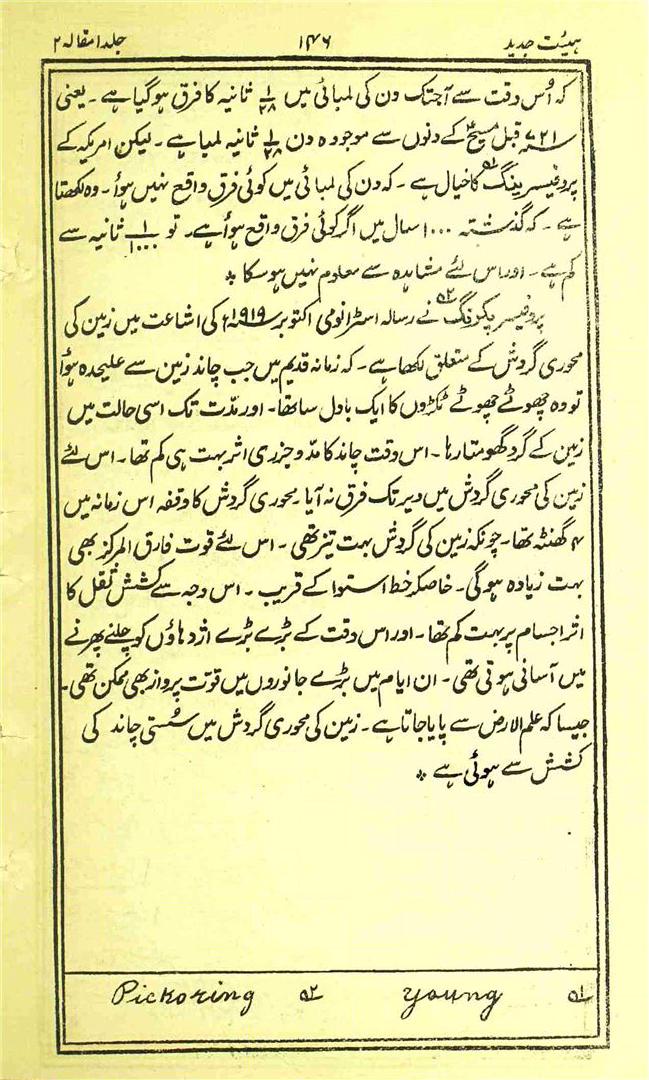 ہیئت جدید ۱۴۶ جلد ۱ مقالہ ۲
کہ اُس وقت سے آجتک دن کی لمبائی میں ۱/۲۸ ثانیہ کا فرق ہوگیا ہے۔ یعنی
۷۲۱ قبل مسیحؑ کے دنوں سے موجودہ دن ۱/۲۸ ثانیہ لمبا ہے۔ لیکن امریکہ کے
پروفیسر ینگ۵۱ کا خیال ہے۔ کہ دن کی لمبائی میں کوئی فرق واقع نہیں ہوأ۔ وہ لکھتا
ہے۔ کہ گذشتہ ۱۰۰۰ سال میں اگر کوئی فرق واقع ہوأ ہے۔ تو ۱/۱۰۰۰ ثانیہ سے
کم ہے۔ اور اس لئے مشاہدہ سے معلوم نہیں ہوسکا *
پروفیسر پکرنگ۵۲ نے رسالہ اسٹرانومی اکتوبر ۱۹۱۹ء کی اشاعت میں زمین کی
محوری گردش کے متعلق لکھا ہے۔ کہ زمانہ قدیم میں جب چاند زمین سے علیحدہ ہوأ
تو وہ چھوٹے چھوٹے ٹکڑوں کا ایک بادل سا تھا۔ اور مدّت تک اسی حالت میں
زمین کے گرد گھومتا رہا۔ اس وقت چاند کا مدّ و جزری اثر بہت ہی کم تھا۔ اس لئے
زمین کی محوری گردش میں دیر تک فرق نہ آیا۔ محوری گردش کا وقفہ اس زمانہ میں
۴ گھنٹہ تھا۔ چونکہ زمین کی گردش بہت تیز تھی۔ اس لئے قوت فارق المرکز بھی
بہت زیادہ ہوگی۔ خاصکر خط استوا کے قریب۔ اس وجہ سے کشش ثقل کا
اثر اجسام پر بہت کم تھا۔ اور اس وقت کے بڑے بڑے اژدہاؤں کو چلنے پھرنے
میں آسانی ہوتی تھی۔ ان ایام میں بڑے جانوروں میں قوت پرواز بھی ممکن تھی۔
جیسا کہ علم الارض سے پایا جاتا ہے۔ زمین کی محوری گردش میں سُستی چاند کی
کشش سے ہوئی ہے *
۵۱ Young ۵۲ Pickoring